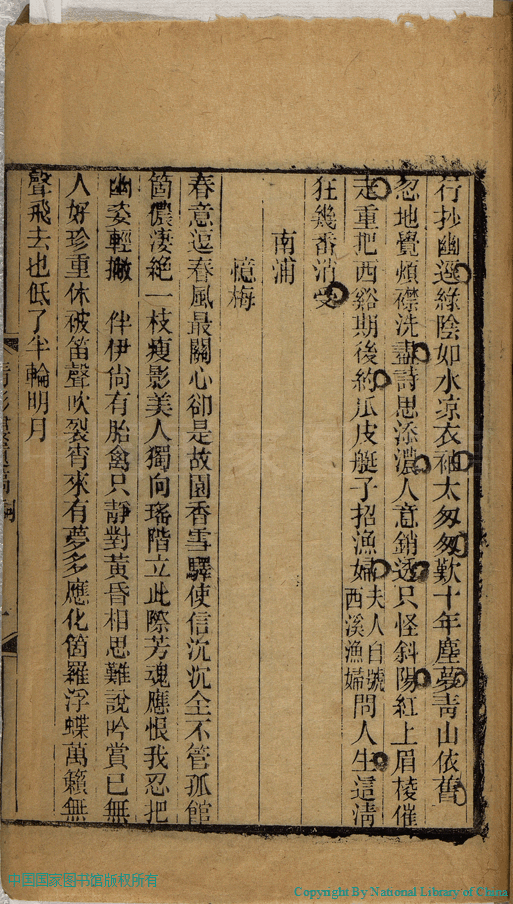 行抄幽逕綠陰如水凉衣袖太匆匆歎十年塵夢靑山依舊
忽地覺煩襟洗盡詩思添濃人意銷透只怪斜陽紅上眉棱催
走重把西谿期後約瓜皮艇子招漁婦夫人自號西溪漁婦問人生這淸
狂幾番消受
南浦
憶梅
春意逗春風最關心卻是故園香雪驛使信沈沈全不管孤館
箇儂淒絕一枝瘦影美人獨向瑤階立此際芳魂應恨我忍把
幽姿輕撇 伴伊尙有胎禽只靜對黃昏相思難說吟賞已無
人好珍重休被笛聲吹裂宵來有夢多應化箇羅浮蝶萬籟無
聲飛去也低了半輪明月
中国国家图书馆版权所有
Copyright By National Library of China